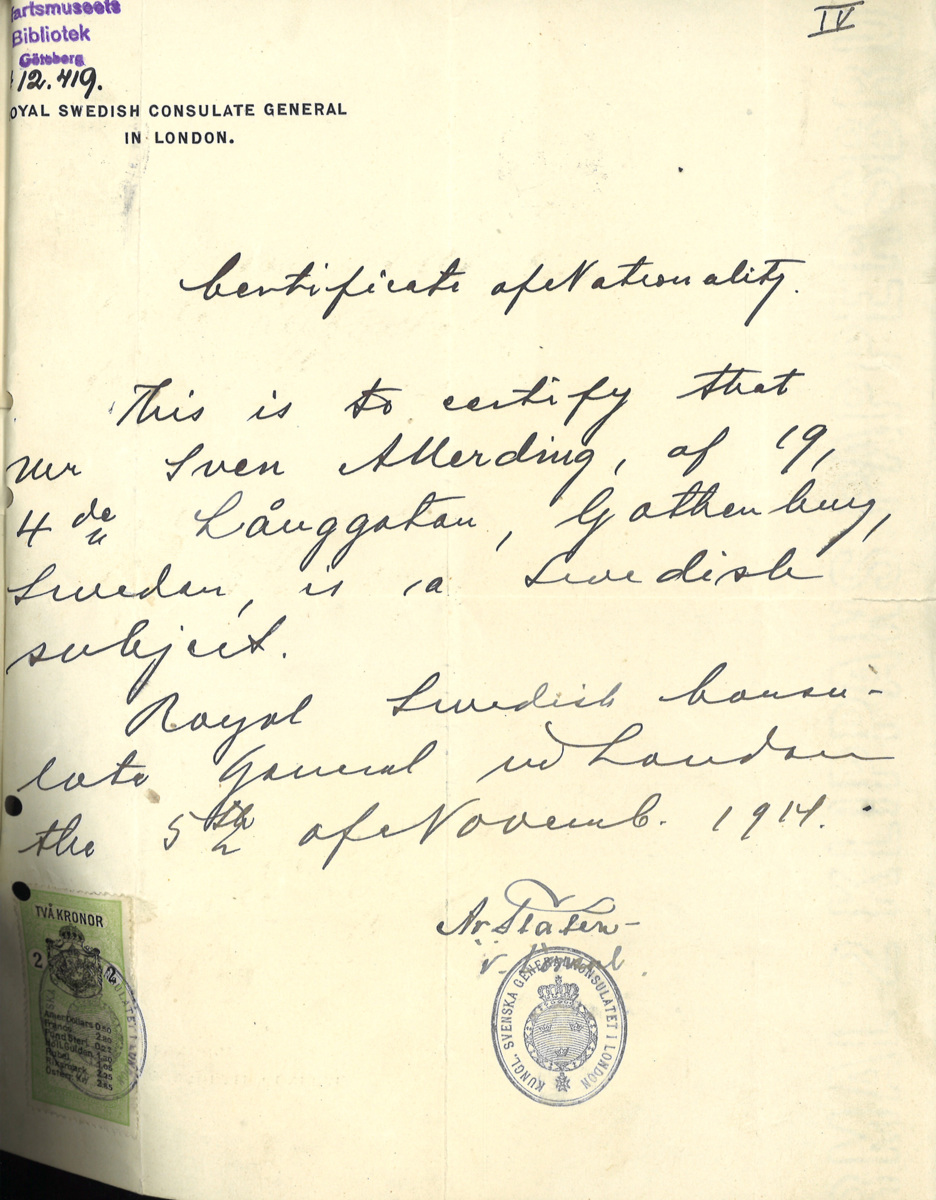 artsmuseets
Bibliotek
Göteborg
12.419.
IV
OYAL SWEDISH CONSULATE GENERAL
IN LONDON.
Certificate of Nationality.
This is to certify that
Mr Sven Allerding, of 19,
4 de Långgatan, Gothenburg,
Sweden, is a Swedish
subject.
Royal Swedish Consu-
late General in London
the 5th of Novemb. 1914.
v.
KUNGL. SVENSKA GENERALKONSULATET I LONDON
TVÅ KRONOR
2 2
Amer. Dollars 0.50
Francs 2.80
Pund Sterl.
Holl. Gulden
Rubel
Riksmark 2.25
Österr. Kr. 2.65